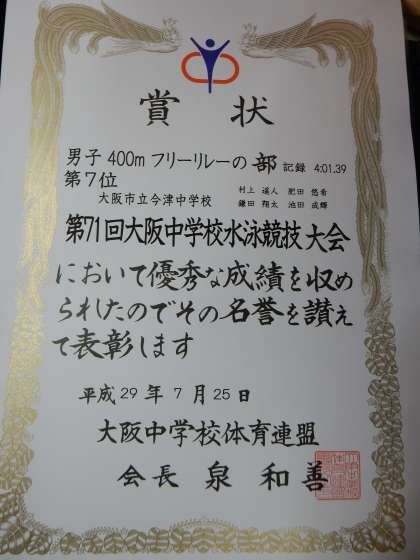 賞状
男子 400m フリーリレーの 部 記録 4:01.39
第7位
大阪市立今津中学校
村上 遥人 肥田 悠希
鎌田 翔太 池田 成輝
第71回大阪中学校水泳競技 大会
において優秀な成績を収め
られたのでその名誉を讃え
て表彰します
平成 29 年 7 月 25 日
大阪中学校体育連盟
会長 泉 和善